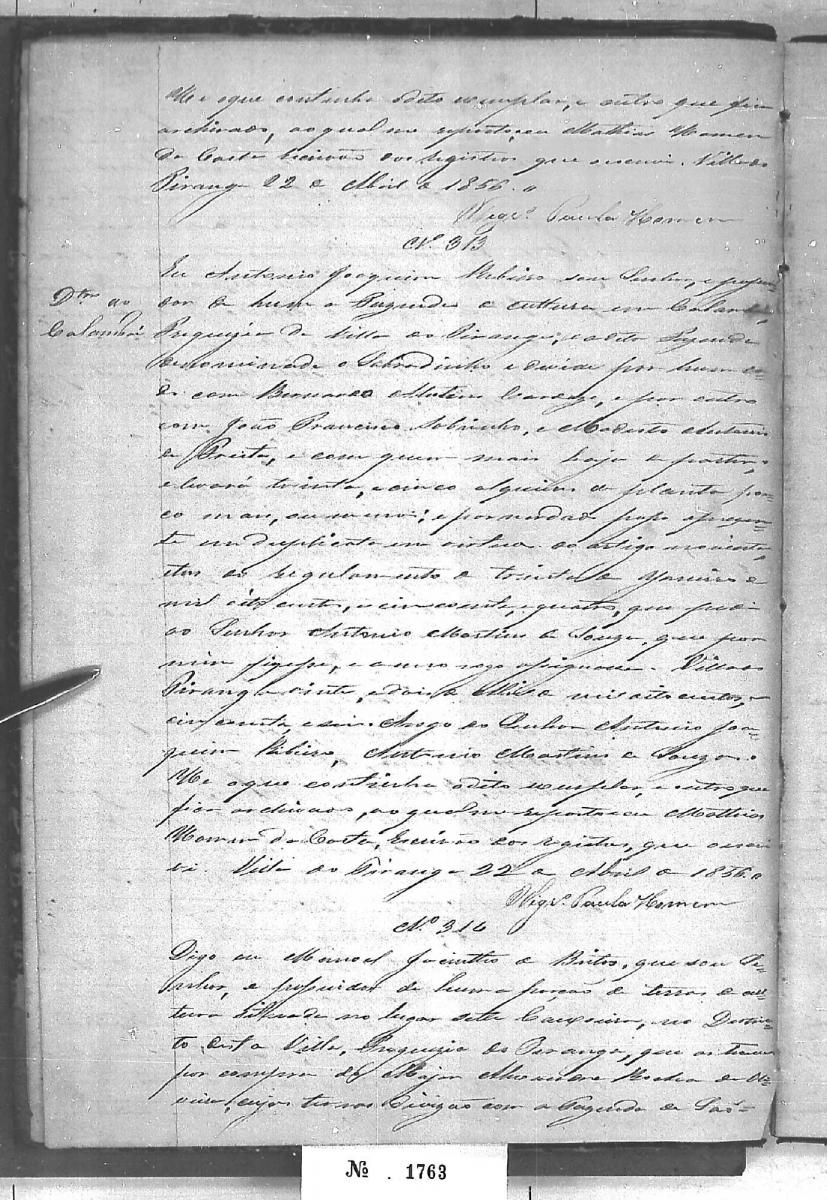 He o que continha o dito exemplar, e outro que fica
archivado, ao qual me reporto, eu Mathias Homem
da Costa Escrivão dos registros que escrevi. Villa do
Piranga 22 de Abril de 1856.
Vigr.º Paula Homem
Nº 313
Dtro do
Calambáo
Eu Antonio Joaquim Ribeiro sou Senhor, e possui-
dor de huma Fazenda de cultura em Calambáo,
Freguezia da Villa do Piranga, e a dita Fazenda
denominada o Sobradinho e divide por hum la-
do com Bernardo Martins, e por outro
com João Francisco Sobrinho, e Modesto Antonio
de Freita, e com quem mais haja de partir, e
levará trinta, e cinco alqueires de planta pou-
co mais, ou menos; e por verdade passo o presen-
te em duplicata em virtude do artigo
do regulamento de trinta de Janeiro de
mil oito centos, e cincoenta, e quatro, que pedi
ao Senhor Antonio Martins de Souza, que por
mim fizesse, e a meu rogo assignasse. Villa do
Piranga vinte, e dois de Abril de mil oito centos, e
cincoenta, e seis. Arogo do Senhor Antonio Joa-
quim Ribeiro, Antonio Martins de Souza.
He o que continha o dito exemplar, e outro que
fica archivado, ao qual me reporto eu Mathias
Homem da Costa, Escrivão dos registros, que escre-
vi. Villa do Piranga 22 de Abril de 1856.
Vigr.º Paula Homem
Nº 314
Digo eu Manoel Jacintho de Britos, que sou Se-
nhor, e possuidor de huma porção de terras de cul-
tura situada no lugar, no Destric-
to desta Villa, Freguezia do Piranga, que as houve
por compra do Major Alexandre Rocha de Oli-
veira, cujas terras divizão com a Fazenda de
Nº . 1763